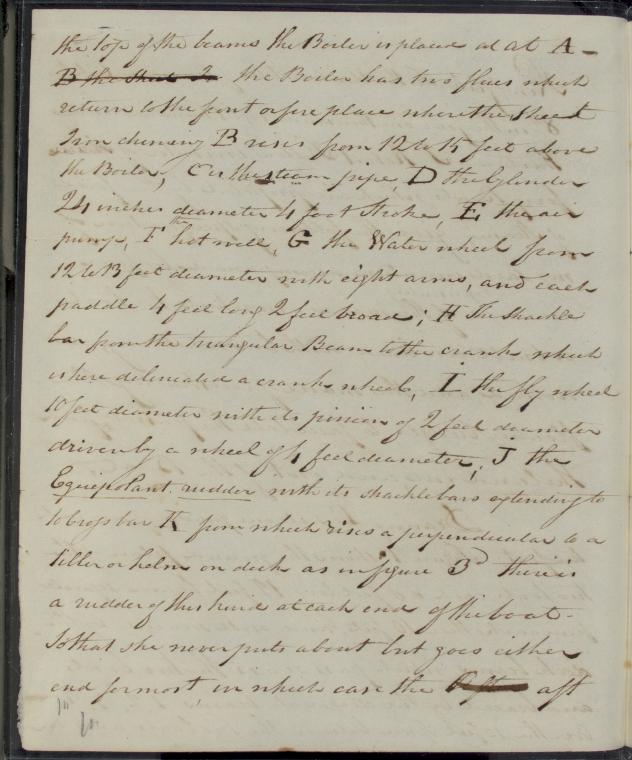 the top of the beams the Boiler is placed at at A –
B the Sheet Ir the Boiler has two flues which
return to the front or fire place where the Sheet
Iron chimney B rises from 12 to 15 feet above
the Boiler, C is the steam pipe, D the Cylinder
24 inches diameter 4 foot Stroke, E the air
pump, F the hot well, G the Water wheel from
12 to 13 feet diameter with eight arms, and each
paddle 4 feet long 2 feet broad; H The Shackle
bar from the triangular Beam to the crank which
is here delineated a crank wheel, I the fly wheel
10 feet diameter with its pinion of 2 feet diameter
driven by a wheel of 4 feet diameter, J the
Equipolant rudder with its shackle bars extending to
to cross bar K from which rises a perpendicular to a
tiller or helm on deck as in figure 3d there is
a rudder of this kind at each end of the boat –
So that she never puts about but goes either
end formost, in which case the aft